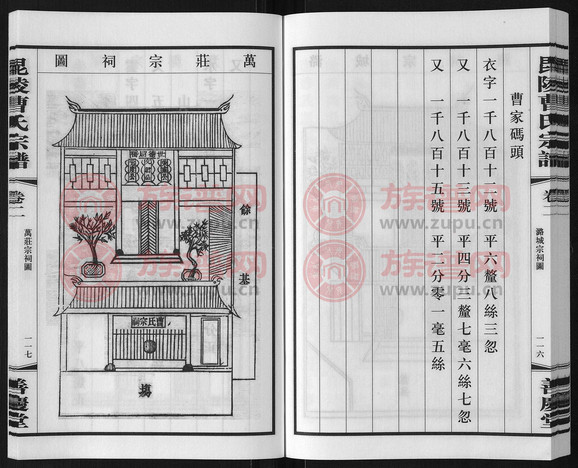 毘陵曹氏宗譜
卷二
潞城宗祠圖
一一六
善慶堂
曹家碼頭
衣字一千八百十二號 平六釐八絲三忽
又 一千八百十三號 平四分三釐七毫六絲七忽
又 一千八百十五號 平二分零一毫五絲
萬莊宗祠圖
餘基
曹氏宗祠
場
毘陵曹氏宗譜
卷二
萬莊宗祠圖
一一七
善慶堂
族譜网
www.zupu.cn
族譜网
www.zupu.cn
族譜网
www.zupu.cn
族譜网
www.zupu.cn